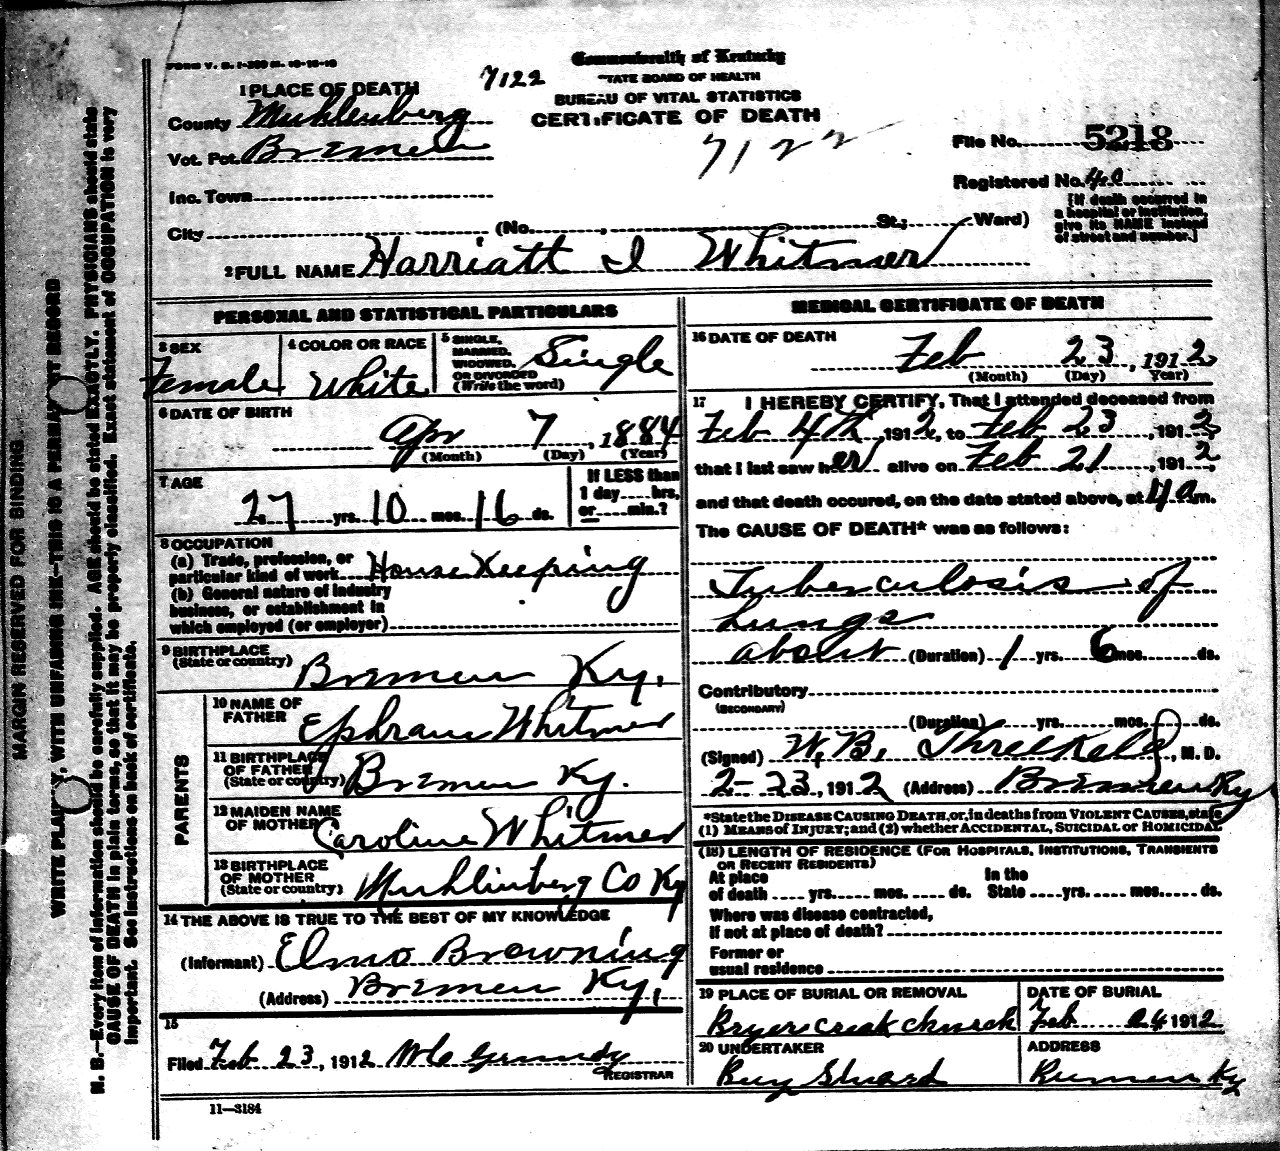 FORM V. S. 1-200 M. 10-10-10
Commonwealth of Kentucky
STATE BOARD OF HEALTH
BUREAU OF VITAL STATISTICS
CERTIFICATE OF DEATH
7122
7122
1 PLACE OF DEATH
County Muhlenberg
Vot. Pct. Bremen
Inc. Town
City (No. , St.; Ward)
File No. 5218
Registered No. 40
[If death occurred in
a hospital or institution,
give its NAME instead
of street and number.]
2 FULL NAME Harriatt I Whitmer
PERSONAL AND STATISTICAL PARTICULARS
3 SEX Female
4 COLOR OR RACE White
5 SINGLE, MARRIED, WIDOWED, OR DIVORCED (Write the word) Single
6 DATE OF BIRTH
Apr 7, 1884
(Month) (Day) (Year)
7 AGE
27 yrs. 10 mos. 16 ds.
If LESS than
1 day....hrs.
or....min.?
8 OCCUPATION
(a) Trade, profession, or
particular kind of work House Keeping
(b) General nature of industry
business, or establishment in
which employed (or employer)
9 BIRTHPLACE
(State or country) Bremen Ky.
PARENTS
10 NAME OF
FATHER Ephram Whitmer
11 BIRTHPLACE
OF FATHER
(State or country) Bremen Ky.
12 MAIDEN NAME
OF MOTHER Caroline Whitmer
13 BIRTHPLACE
OF MOTHER
(State or country) Muhlinberg Co Ky
14 THE ABOVE IS TRUE TO THE BEST OF MY KNOWLEDGE
(Informant) Elmo Browning
(Address) Bremen Ky.
15
Filed Feb 23, 1912 Grundy
REGISTRAR
11—3184
MEDICAL CERTIFICATE OF DEATH
16 DATE OF DEATH
Feb 23, 1912
(Month) (Day) Year)
17 I HEREBY CERTIFY, That I attended deceased from
Feb 4th, 1912, to Feb 23, 1912,
that I last saw her alive on Feb 21, 1912,
and that death occured, on the date stated above, at 4 a m.
The CAUSE OF DEATH* was as follows:
Tuberculosis of
Lungs
about (Duration) 1 yrs. 6 mos. ds.
Contributory
(SECONDARY)
(Duration) yrs. mos. ds.
(Signed) W. B. Threlkeld, M. D.
2-23, 1912 (Address) Bremen Ky
*State the DISEASE CAUSING DEATH, or, in deaths from VIOLENT CAUSES, state
(1) MEANS OF INJURY; and (2) whether ACCIDENTAL, SUICIDAL or HOMICIDAL
(18) LENGTH OF RESIDENCE (FOR HOSPITALS, INSTITUTIONS, TRANSIENTS
OR RECENT RESIDENTS)
At place In the
of death yrs. mos. ds. State yrs. mos. ds.
Where was disease contracted,
if not at place of death?
Former or
usual residence
19 PLACE OF BURIAL OR REMOVAL
Bryer creak church
DATE OF BURIAL
Feb 24 1912
20 UNDERTAKER
ADDRESS
Ky
MARGIN RESERVED FOR BINDING
WRITE PLAINLY, WITH UNFADING INK—THIS IS A PERMANENT RECORD
N. B.—Every item of information should be carefully supplied. AGE should be stated EXACTLY. PHYSICIANS should state
CAUSE OF DEATH in plain terms, so that it may be properly classified. Exact statement of OCCUPATION is very
important. See instructions on back of certificate.